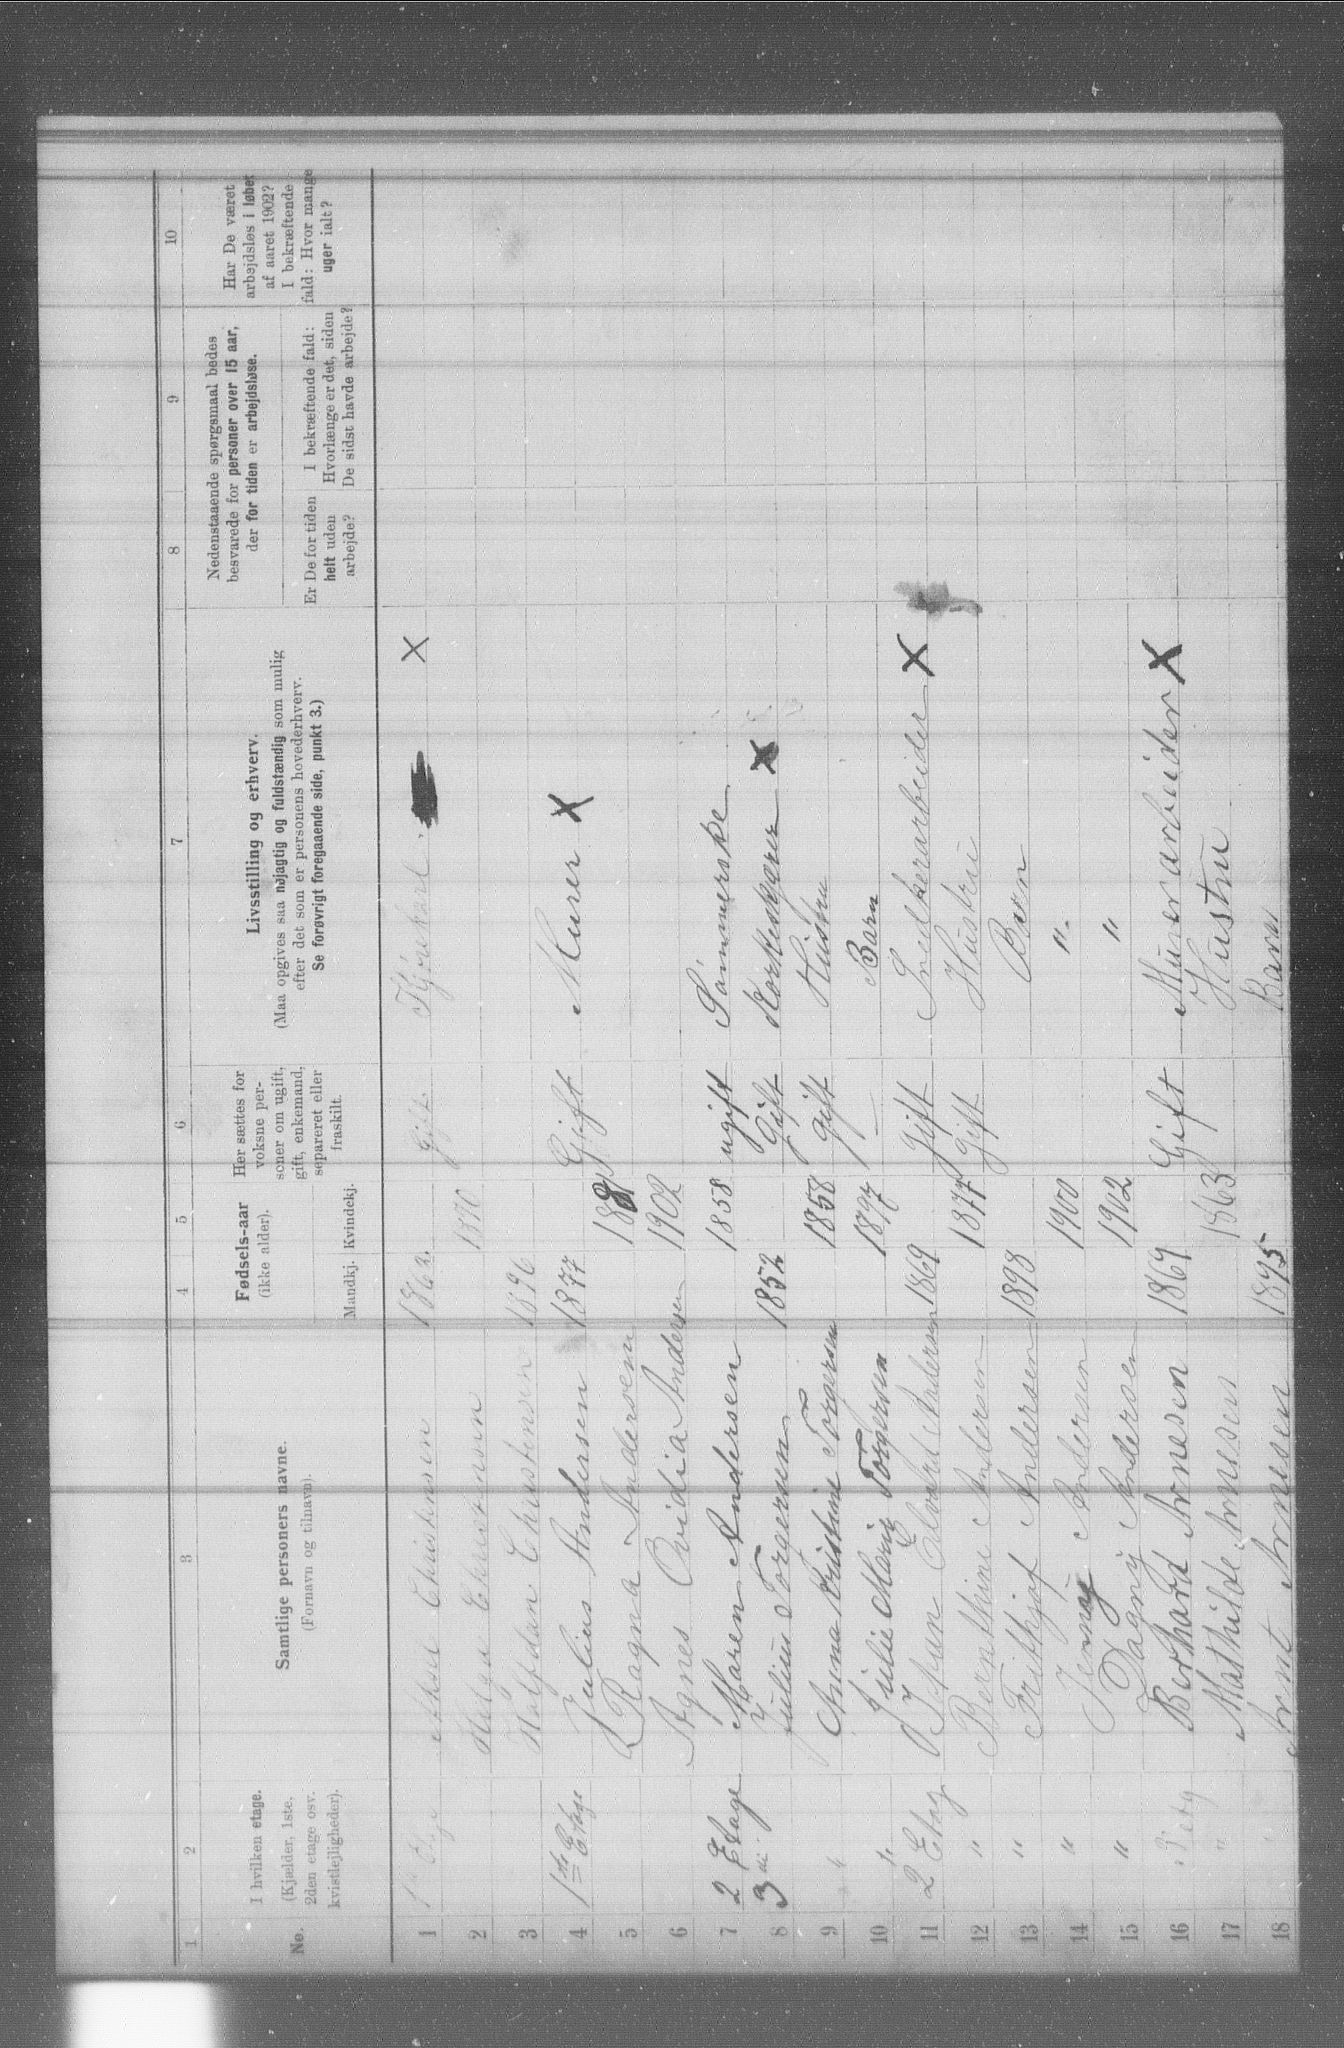 1 2 3 4 5 6 7 8 9 10
No.
I hvilken etage.
(Kjælder, 1ste,
2den etage osv.
kvistlejligheder).
Samtlige personers navne.
(Fornavn og tilnavn).
Fødsels-aar
(ikke alder).
Mandkj. Kvindekj.
Her sættes for
voksne per-
soner om ugift,
gift, enkemand,
separeret eller
fraskilt.
Livsstilling og erhverv.
(Maa opgives saa nøjagtig og fuldstændig som mulig
efter det som er personens hovederhverv.
Se forøvrigt foregaaende side, punkt 3.)
Nedenstaaende spørgsmaal bedes
besvarede for personer over 15 aar,
der for tiden er arbejdsløse.
Er De for tiden
helt uden
arbejde?
I bekræftende fald:
Hvorlænge er det, siden
De sidst havde arbejde?
Har De været
arbejdsløs i løbet
af aaret 1902?
I bekræftende
fald: Hvor mange
uger ialt?
1 Christensen 1862 Gift Kjørekarl X
2 Helga Christensen 1870
3 Halfdan Christensen 1896
4 1ste Etage Julius Andersen 1877 Gift Murer X
5 Ragna Andersen
6 Agnes Ovidia Andersen 1902
7 2 Etage Maren Andersen 1858 ugift Sømmerske
8 3 di Julius Torgersen 1852 Gift Korkeskjærer X
9 " Anna Kristine Torgersen 1858 gift Hustru
10 " Julie Marie Torgersen 1897 — Barn
11 2 Etag Johan Edvard Andersen 1869 Gift Snedkerarbeider X
12 " Bernthine Andersen 1877 Gift Hustru
13 " Frithjof Andersen 1898 Barn
14 " Jenny Andersen 1900 "
15 " Dagny Andersen 1902 "
16 Bernhard Arnesen 1869 Gift Murerarbeider X
17 " Mathilde Arnesen 1863 Hustru
18 Arnt Arnesen 1895 Barn